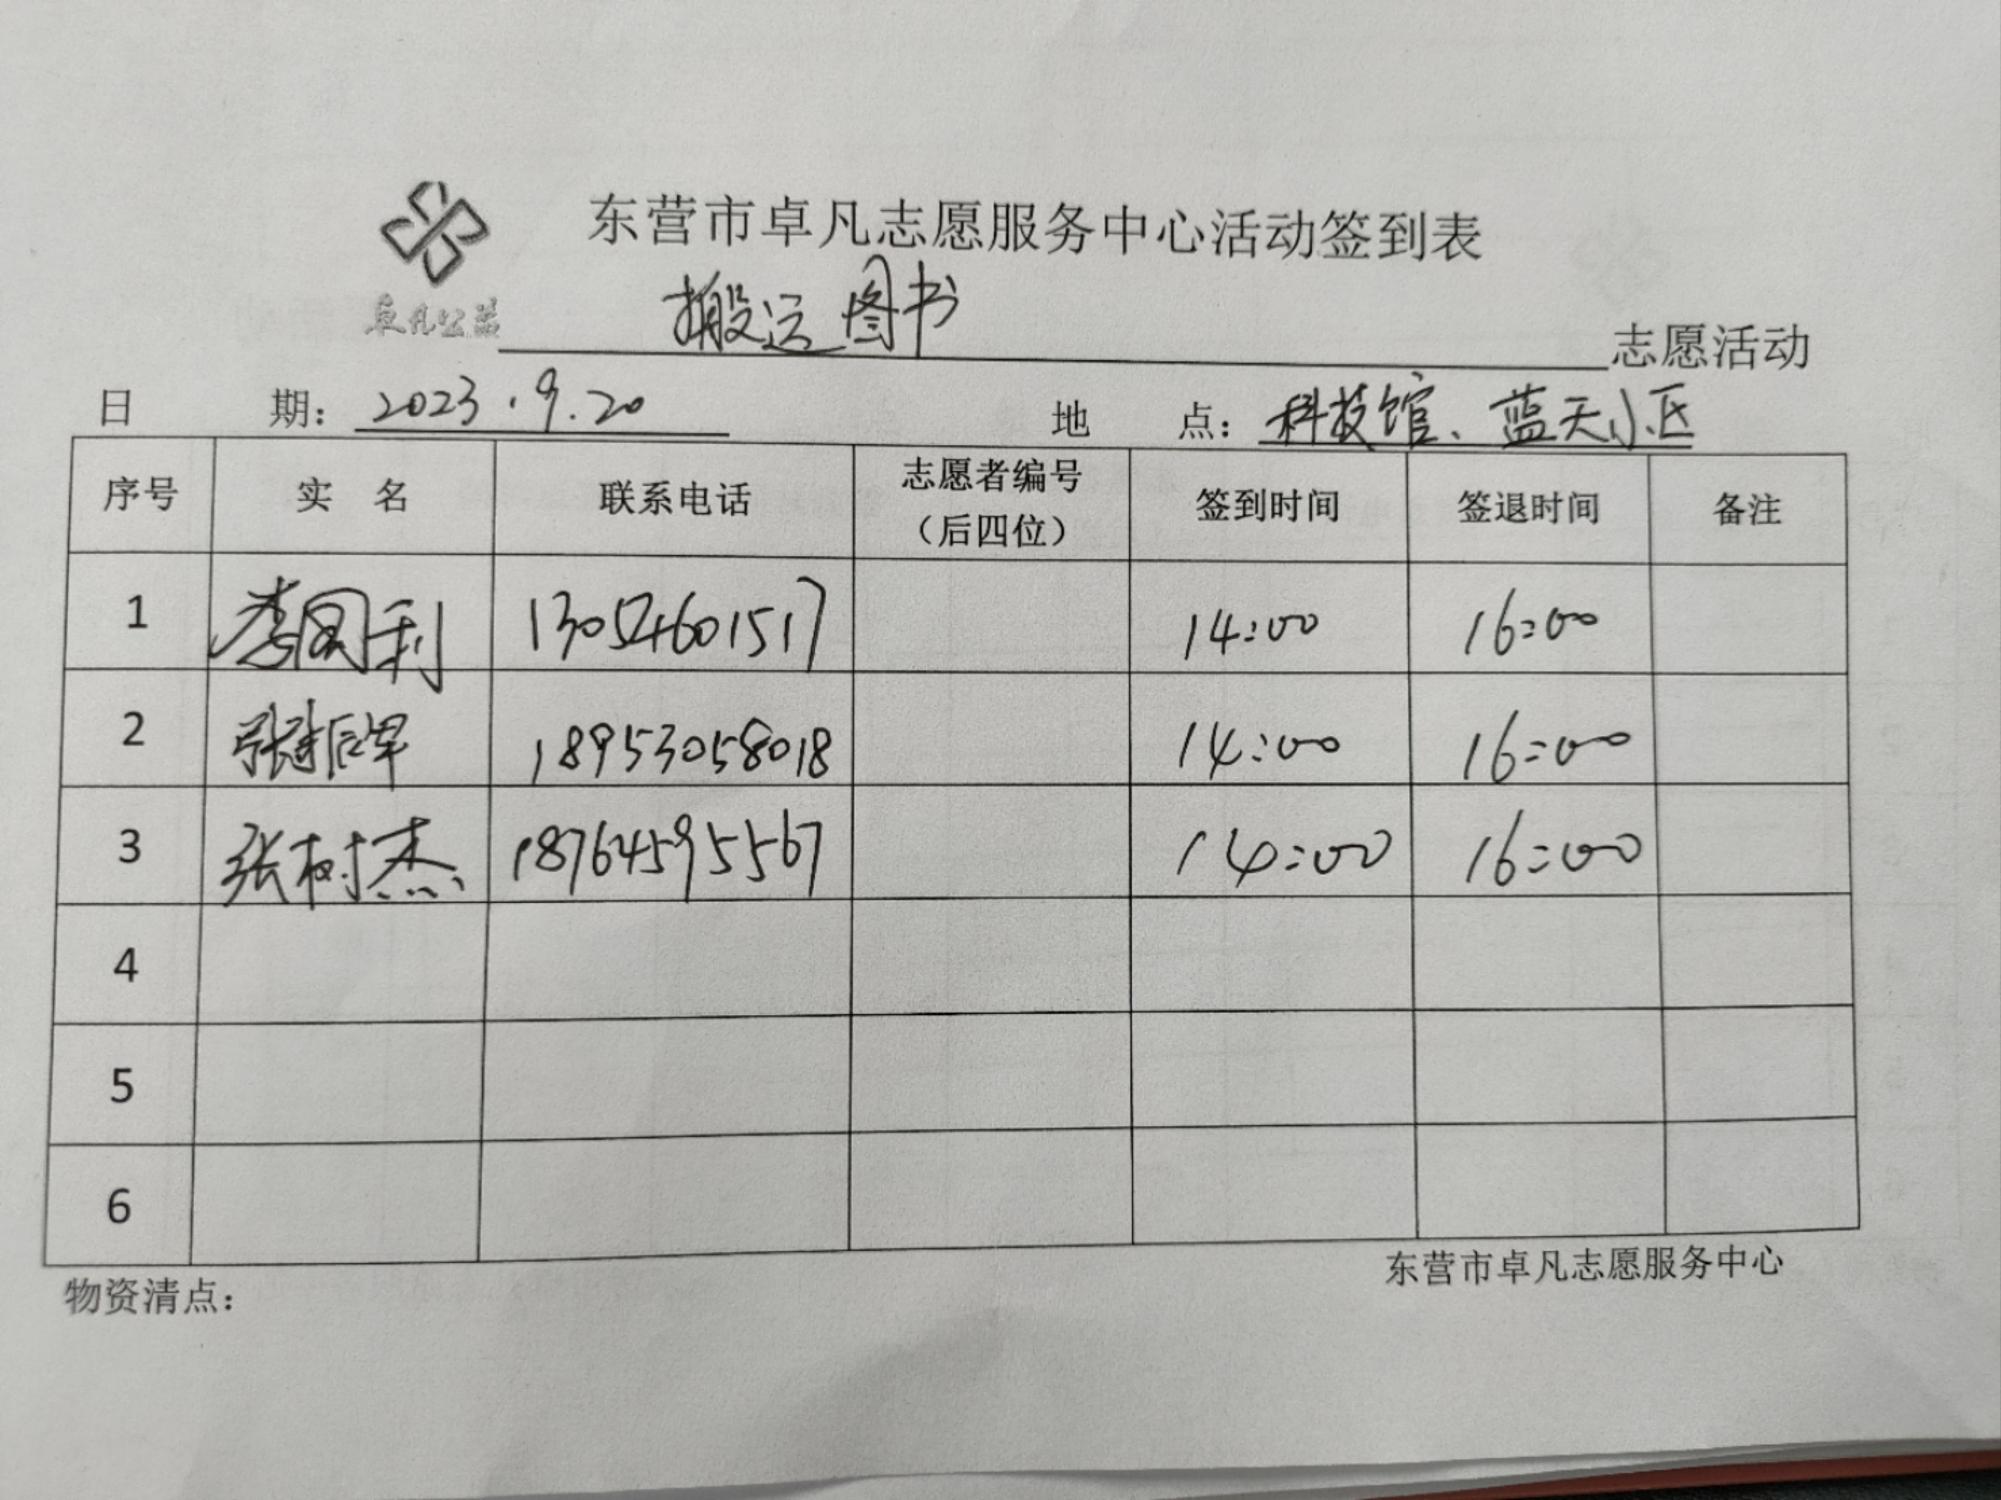 东营市卓凡志愿服务中心活动签到表
卓凡公益
搬运图书 志愿活动
日 期: 2023.9.20 地 点: 科技馆、蓝天小区
序号 实 名 联系电话 志愿者编号（后四位） 签到时间 签退时间 备注
1 李国利 13054601517 14:00 16:00
2 张 18953058018 14:00 16:00
3 张树杰 18764595567 14:00 16:00
4
5
6
物资清点: 东营市卓凡志愿服务中心